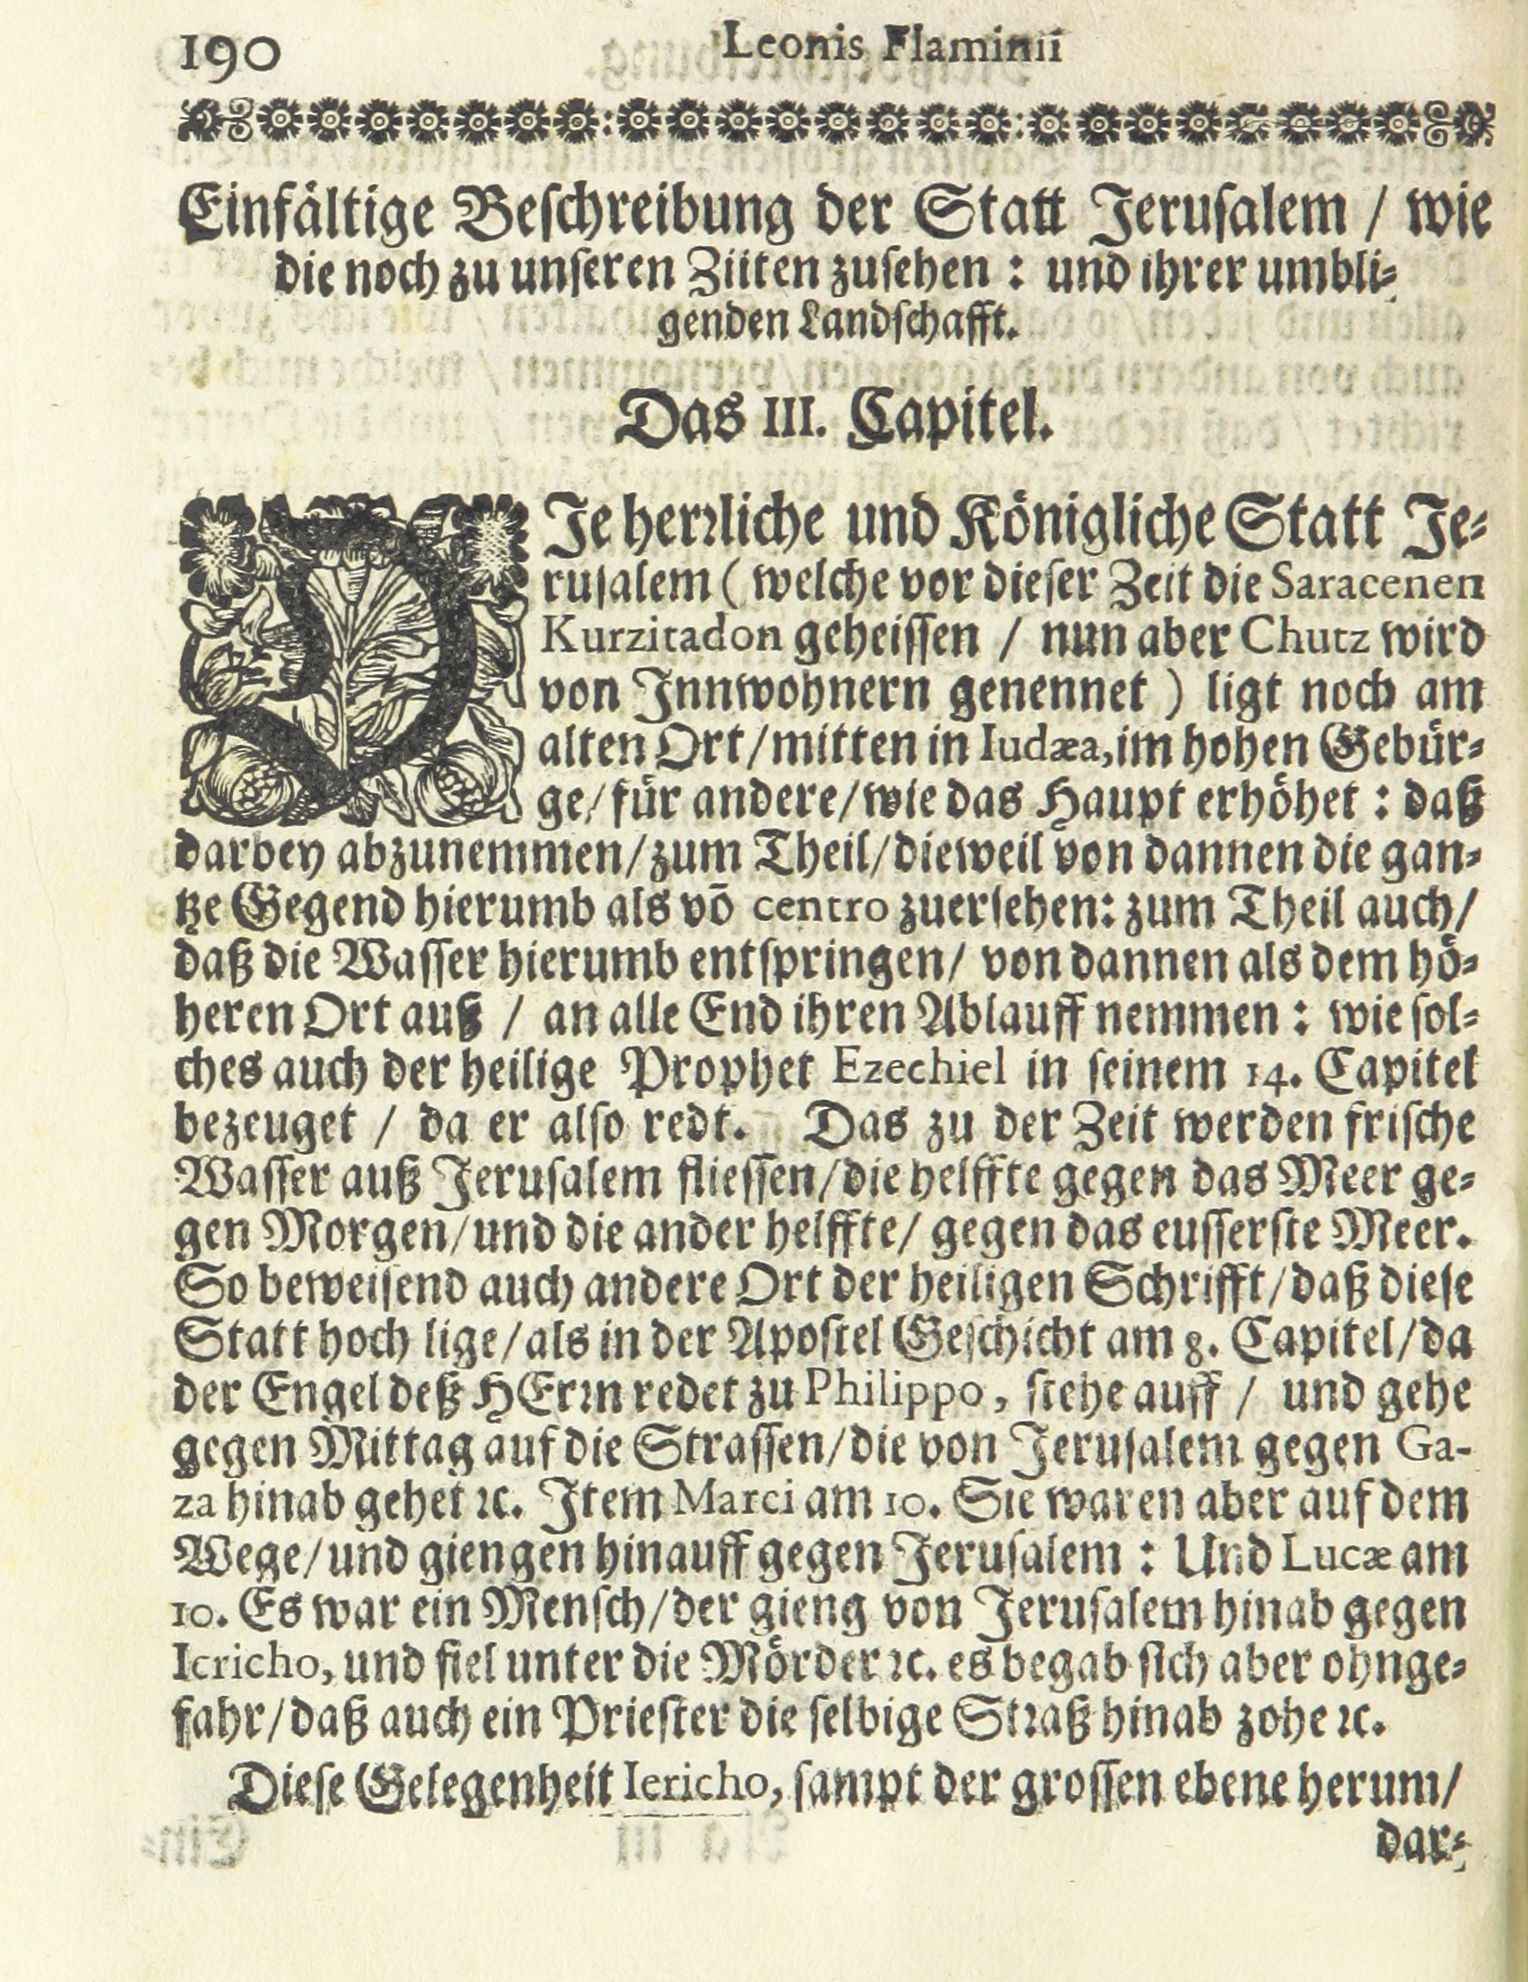 190 Leonis Flaminii
Einfältige Beschreibung der Statt Jerusalem / wie
die noch zu unseren Ziiten zusehen : und ihrer umbli-
genden Landschafft.
Das III. Capitel.
DJe herꝛliche und Königliche Statt Je-
rusalem ( welche vor dieser Zeit die Saracenen
Kurzitadon geheissen / nun aber Chutz wird
von Jnnwohnern genennet ) ligt noch am
alten Ort/mitten in Iudæa,im hohen Gebür-
ge/für andere/wie das Haupt erhöhet : daß
darbey abzunemmen/zum Theil/dieweil von dannen die gan-
tze Gegend hierumb als võ centro zuersehen: zum Theil auch/
daß die Wasser hierumb entspringen/ von dannen als dem hö-
heren Ort auß / an alle End ihren Ablauff nemmen : wie sol-
ches auch der heilige Prophet Ezechiel in seinem 14. Capitel
bezeuget / da er also redt. Das zu der Zeit werden frische
Wasser auß Jerusalem fliessen/die helffte gegen das Meer ge-
gen Morgen/und die ander helffte/ gegen das eusserste Meer.
So beweisend auch andere Ort der heiligen Schrifft/daß diese
Statt hoch lige/als in der Apostel Geschicht am 8. Capitel/da
der Engel deß HErꝛn redet zu Philippo, stehe auff / und gehe
gegen Mittag auf die Strassen/die von Jerusalem gegen Ga-
za hinab gehet ꝛc. Jtem Marci am 10. Sie waren aber auf dem
Wege/und giengen hinauff gegen Jerusalem : Und Lucæ am
10. Es war ein Mensch/der gieng von Jerusalem hinab gegen
Iericho, und fiel unter die Mörder ꝛc. es begab sich aber ohnge-
fahr/daß auch ein Priester die selbige Straß hinab zohe ꝛc.
Diese Gelegenheit Iericho, sampt der grossen ebene herum/
dar-